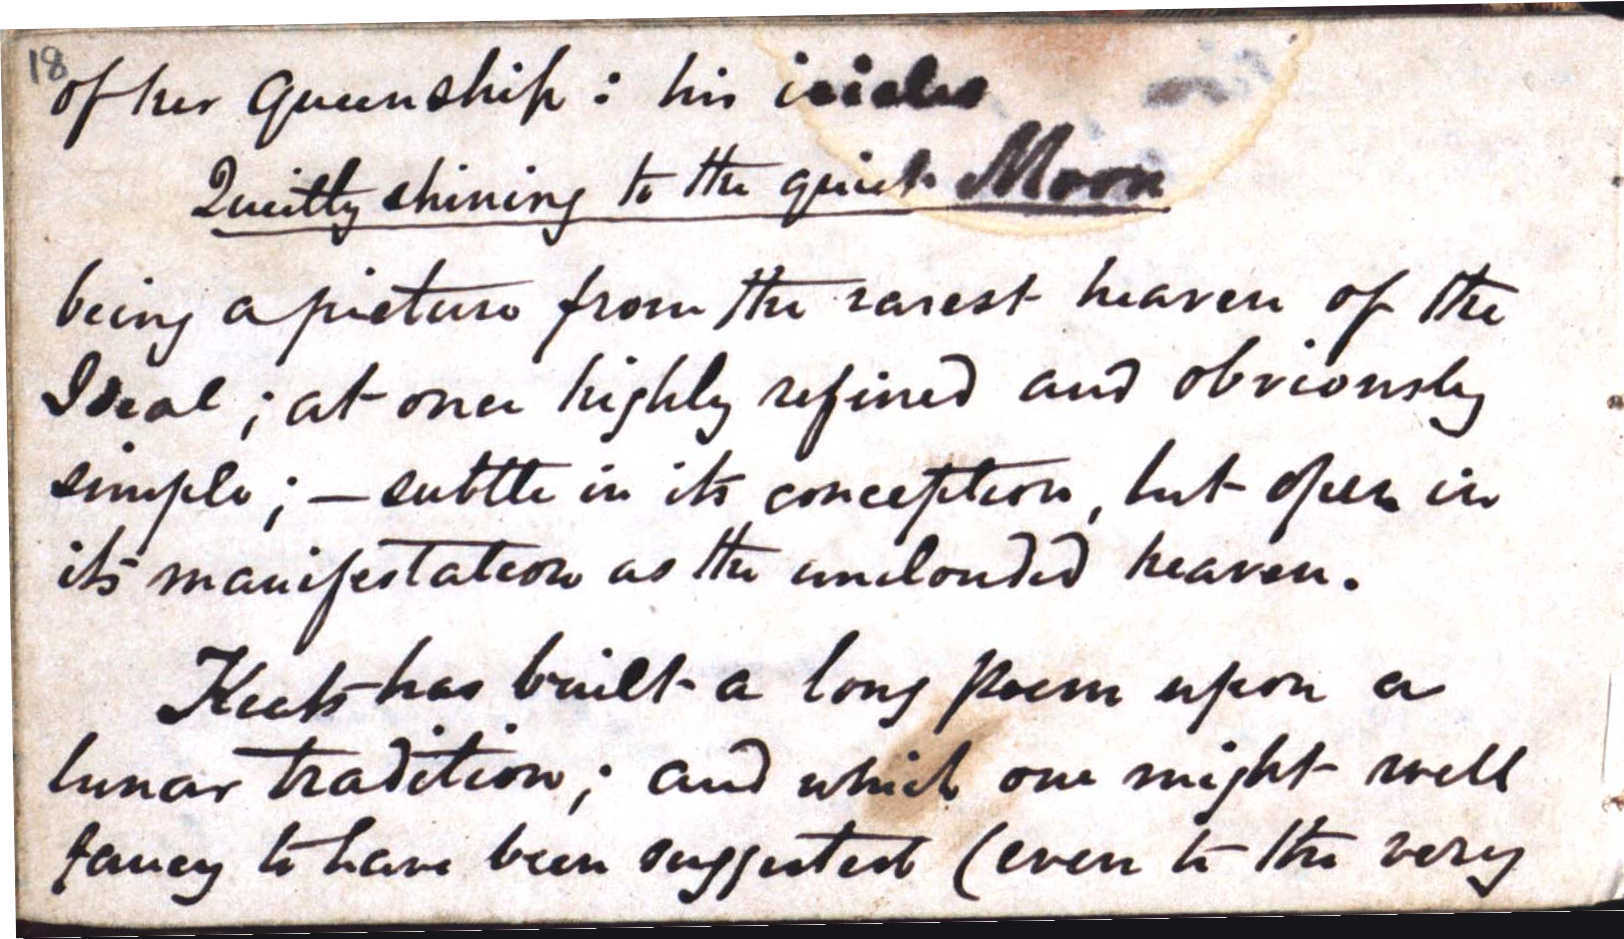 18
of her Queenship : his icicles
Quietly shining to the quiet Moon
being a picture from the rarest heaven of the
Ideal ; at once highly refined and obviously
simple ; — subtle in its conception, but open in
its manifestation as the unclouded heaven.
Keats has built a long Poem upon a
lunar tradition ; and which one might well
fancy to have been suggested (even to the very